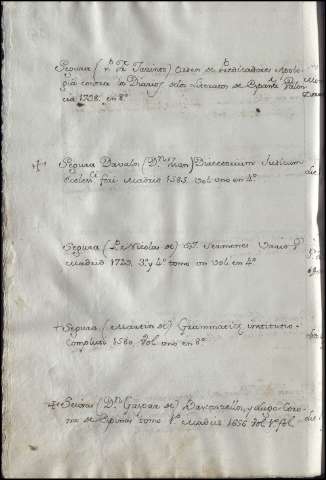 Segura (P.º Fr. Jacinto) Orden de Predicadores Apolo-
gia contra los Diarios de los Literatos de España Valen-
cia 1738. en 8º
Segura Davalos (Dn. Juan) Directorium Judicum
Eccles. fori Madrid 1585. vol. uno en 4º
Segura (Nicolas de) Sermones Varios
Madrid 1729. 3º y 4º tomo un vol en 4º
+ Segura (Martin de) Grammatica institutio
Compluti 1580. Vol. uno en 8º
Seixas (Dn. Gaspar de) Vasconzellos, y Lugo Coro-
na de Espinas tomo 1º Madrid 1656 Vol. 1º fol.